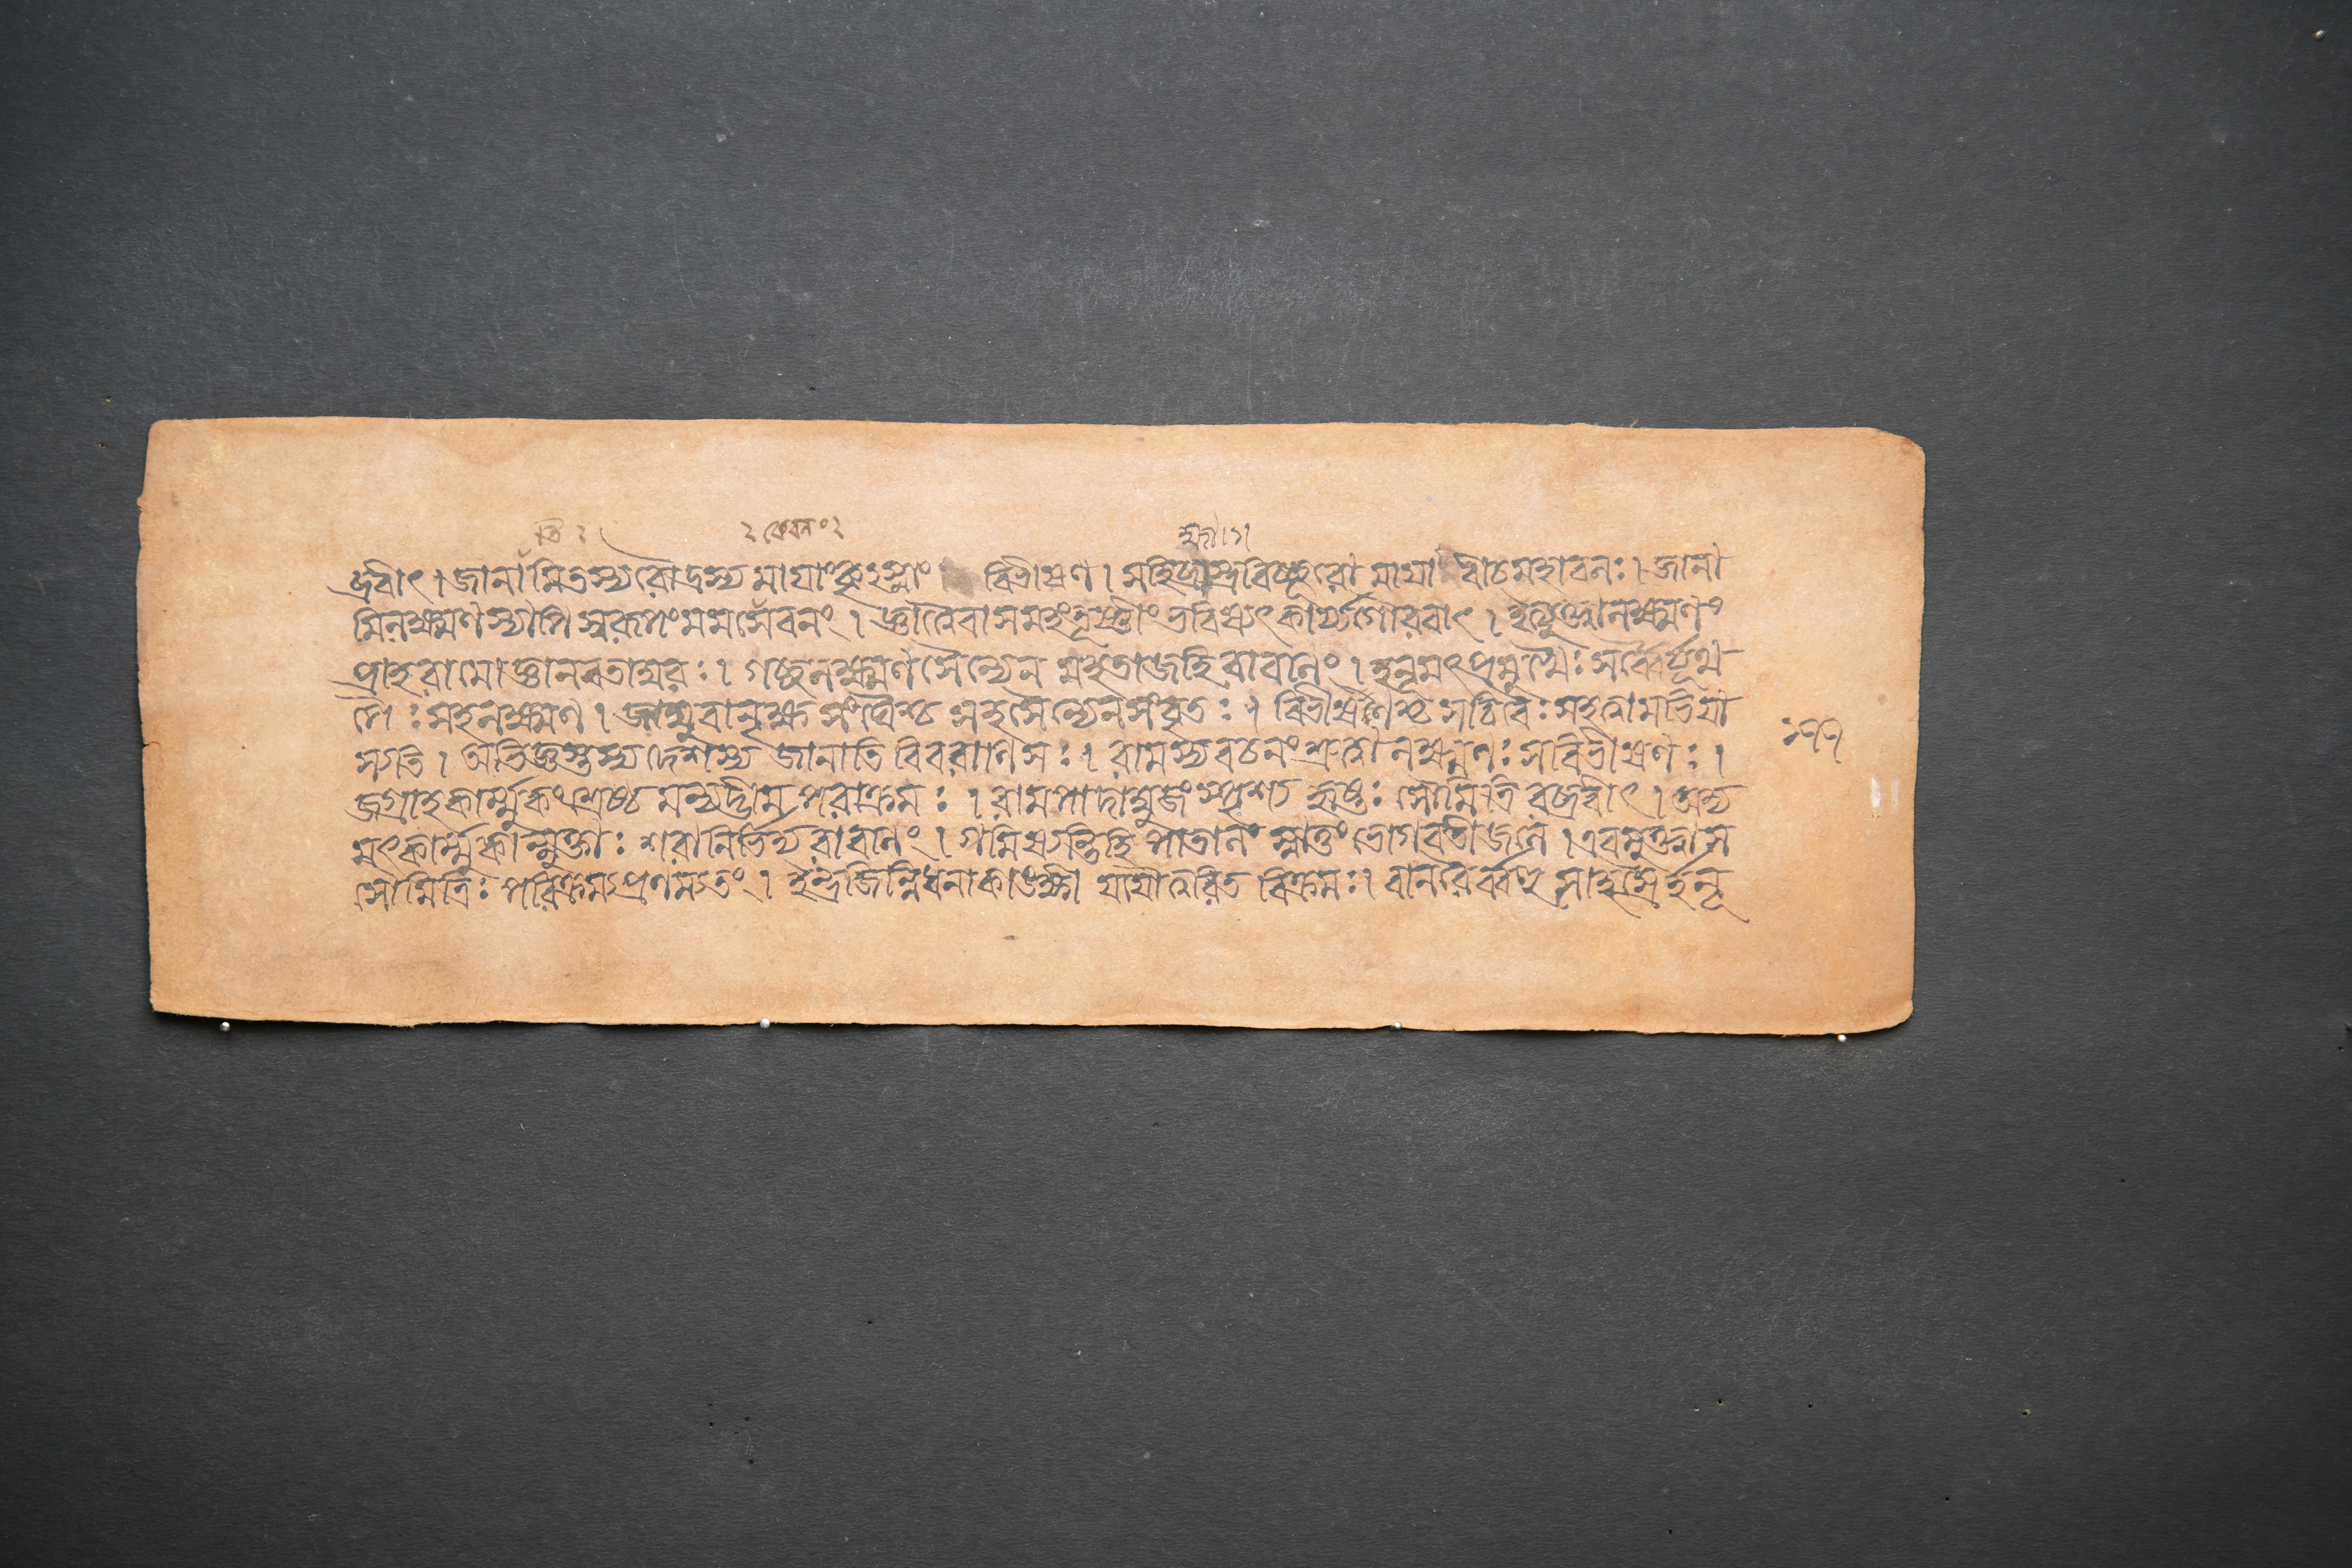 ব্রবীৎ। জানামি তস্য রৌদ্রস্য মাযাং কৃৎস্নাং বিভীষণ। স হি ব্রহ্মাস্ত্রবিচ্ছূরো মাযাবী চ মহাবলঃ। জানা
মি লক্ষ্মণস্যাপি স্বরূপং মম সেবনং। জ্ঞাত্বৈবাসমহং তূষ্ণীং ভবিষ্যৎকার্য্যগৌরবাৎ। ইত্যুক্ত্বা লক্ষ্মণং
প্রাহ রামো জ্ঞানবতাম্বরঃ। গচ্ছ লক্ষ্মণ সৈন্যেন মহতা জহি রাবণিং। হনূমৎপ্রমুখৈঃ সর্ব্বৈর্যূথ
পৈঃ সহ লক্ষ্মণ। জাম্বুবানৃক্ষ সহ সৈন্যেন সংবৃতঃ। বিভীষণশ্চ সচিবৈঃ সহ ত্বামভিযা
স্যতি। অভিজ্ঞস্তস্য দেশস্য জানাতি বিবরাণি সঃ। রামস্য বচনং শ্রুত্বা লক্ষ্মণঃ সবিভীষণঃ।
জগ্রাহ কার্ম্মুকং শ্রেষ্ঠমন্যদ্ভীমপরাক্রমঃ। রামপাদাম্বুজং স্পৃশ্য হৃষ্টঃ সৌমিত্রিরব্রবীৎ। অদ্য
মৎকার্ম্মুকান্মুক্তাঃ শরা নির্ভিদ্য রাবণিং। গমিষ্যন্তি হি পাতালং স্নাতুং ভোগবতীজলে। এবমুক্ত্বা স
সৌমিত্রিঃ পরিক্রম্য প্রণম্য তং। ইন্দ্রজিন্নিধনাকাঙ্ক্ষী যযৌ ত্বরিতবিক্রমঃ। বানরৈর্ব্বহুসাহস্রৈর্হনূ